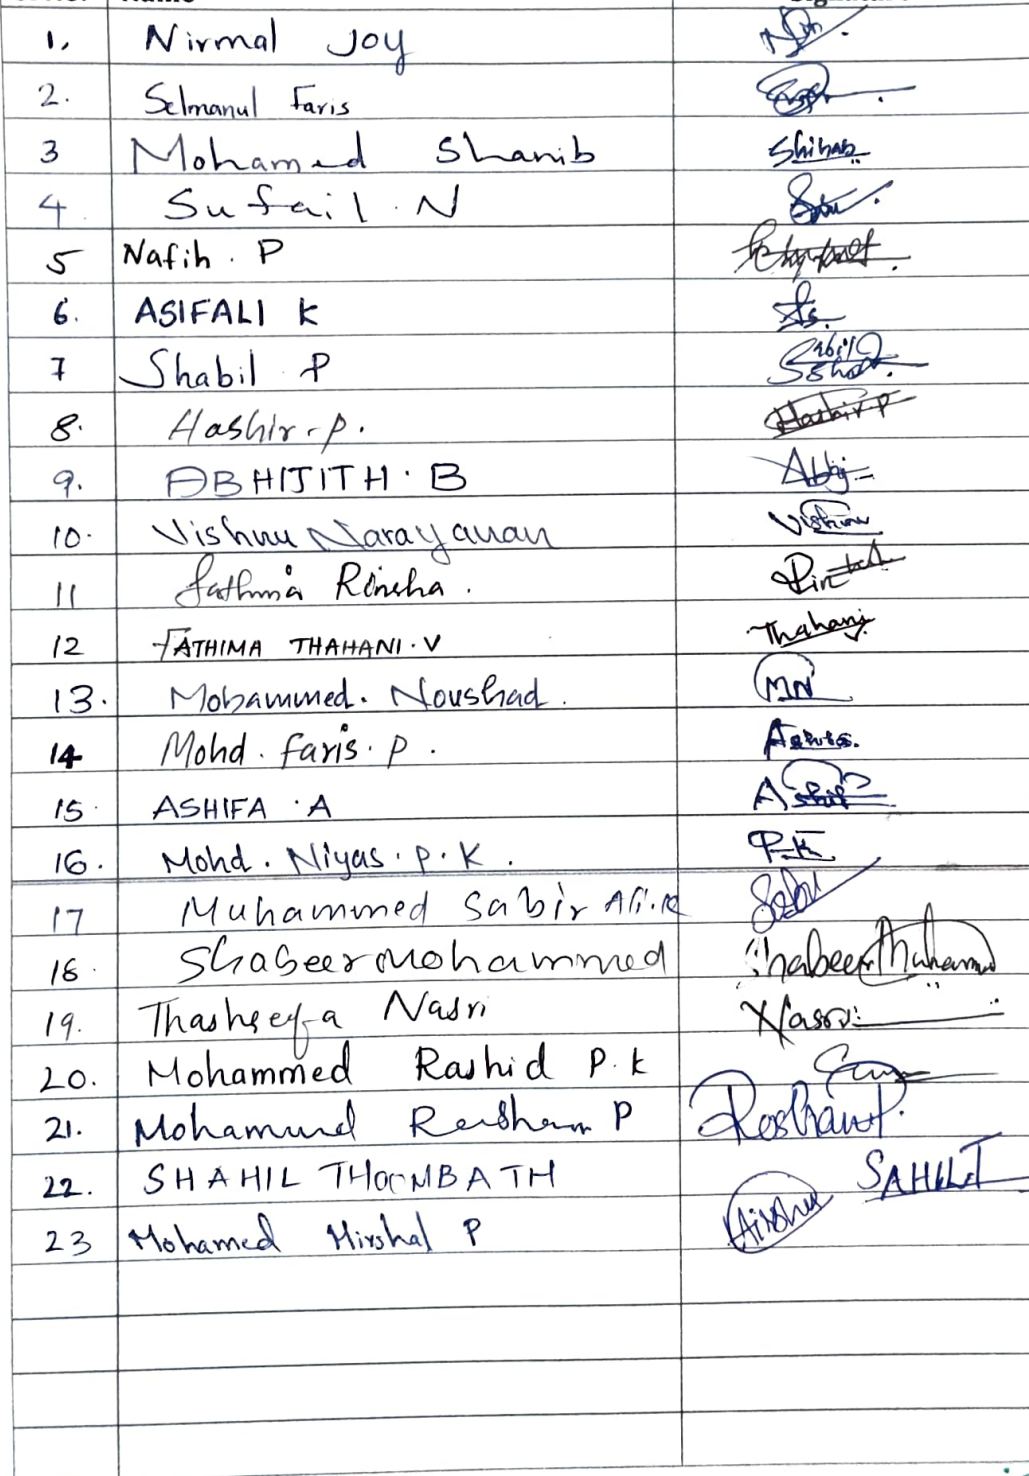 Name
1. Nirmal Joy
2. Selmanul Faris
3 Mohamed Shanib Shihab
4. Sufail. N
5 Nafih. P
6. ASIFALI K As.
7 Shabil P
8. Hashir. P. Hashir. P
9. ABHIJITH. B Abhj
10. Vishnu Narayanan Vishnu
11 Fathima Rinsha.
12 FATHIMA THAHANI. V Thahani
13. Mohammed. Noushad. MN
14 Mohd. Faris. P.
15. ASHIFA. A
16. Mohd. Niyas. P. K. P.K
17 Muhammed Sabir Ali. K
18. Shabeer Mohammed Shabeer Muhammed
19. Thashreefa Nasri Nasri
20. Mohammed Rashid P. K
21. Mohammed Roshan P Roshan P.
22. SHAHIL THOOMBATH SAHIL T
23 Mohamed Hirshal P